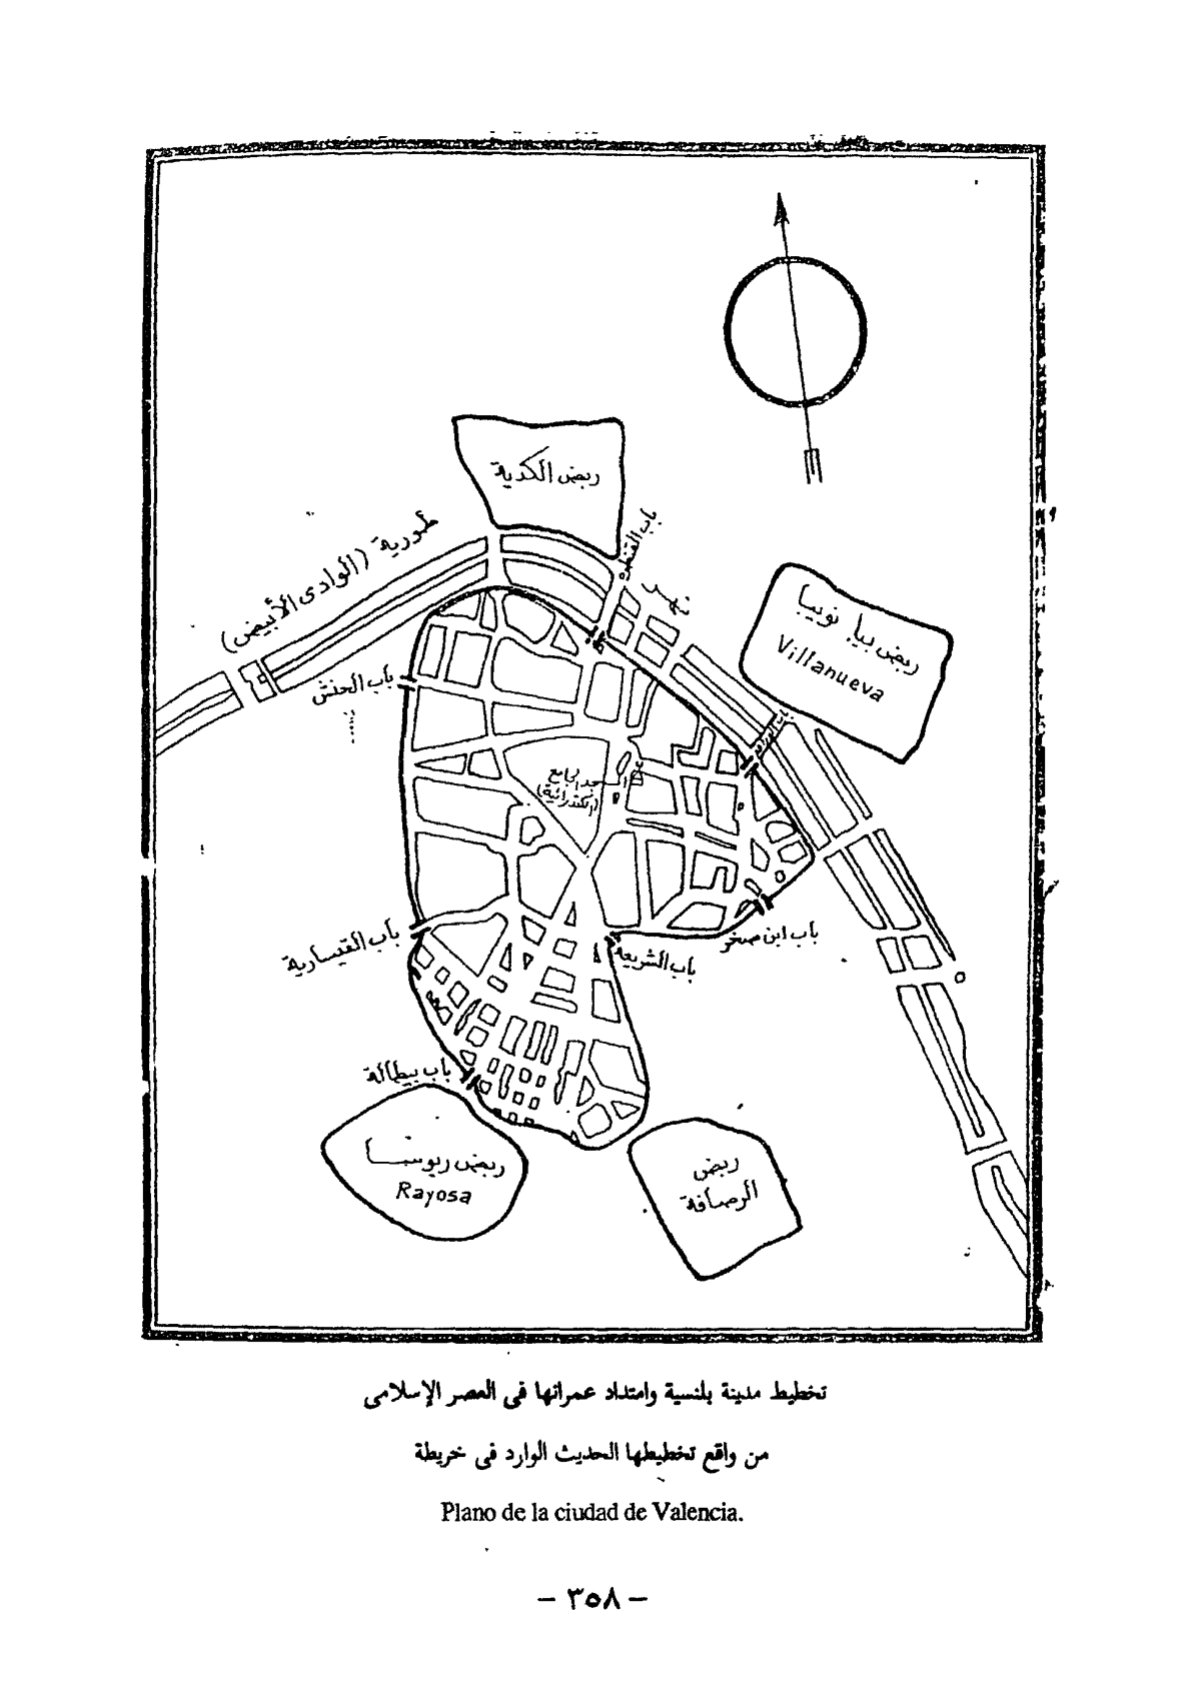 ربض الكدية
باب القنطرة
نهر
طورية (الوادى الأبيض)
ربض بيا نوبيبا
Villanueva
باب الحنش
المسجد الجامع
(الكتدرائية)
باب ابن صخر
باب الشريعة
باب القيسارية
باب بيطالة
ربض ريوسا
Rayosa
ربض
الرصافة
تخطيط مدينة بلنسية وامتداد عمرانها فى العصر الإسلامى
من واقع تخطيطها الحديث الوارد فى خريطة
Plano de la ciudad de Valencia.
– ٣٥٨ –